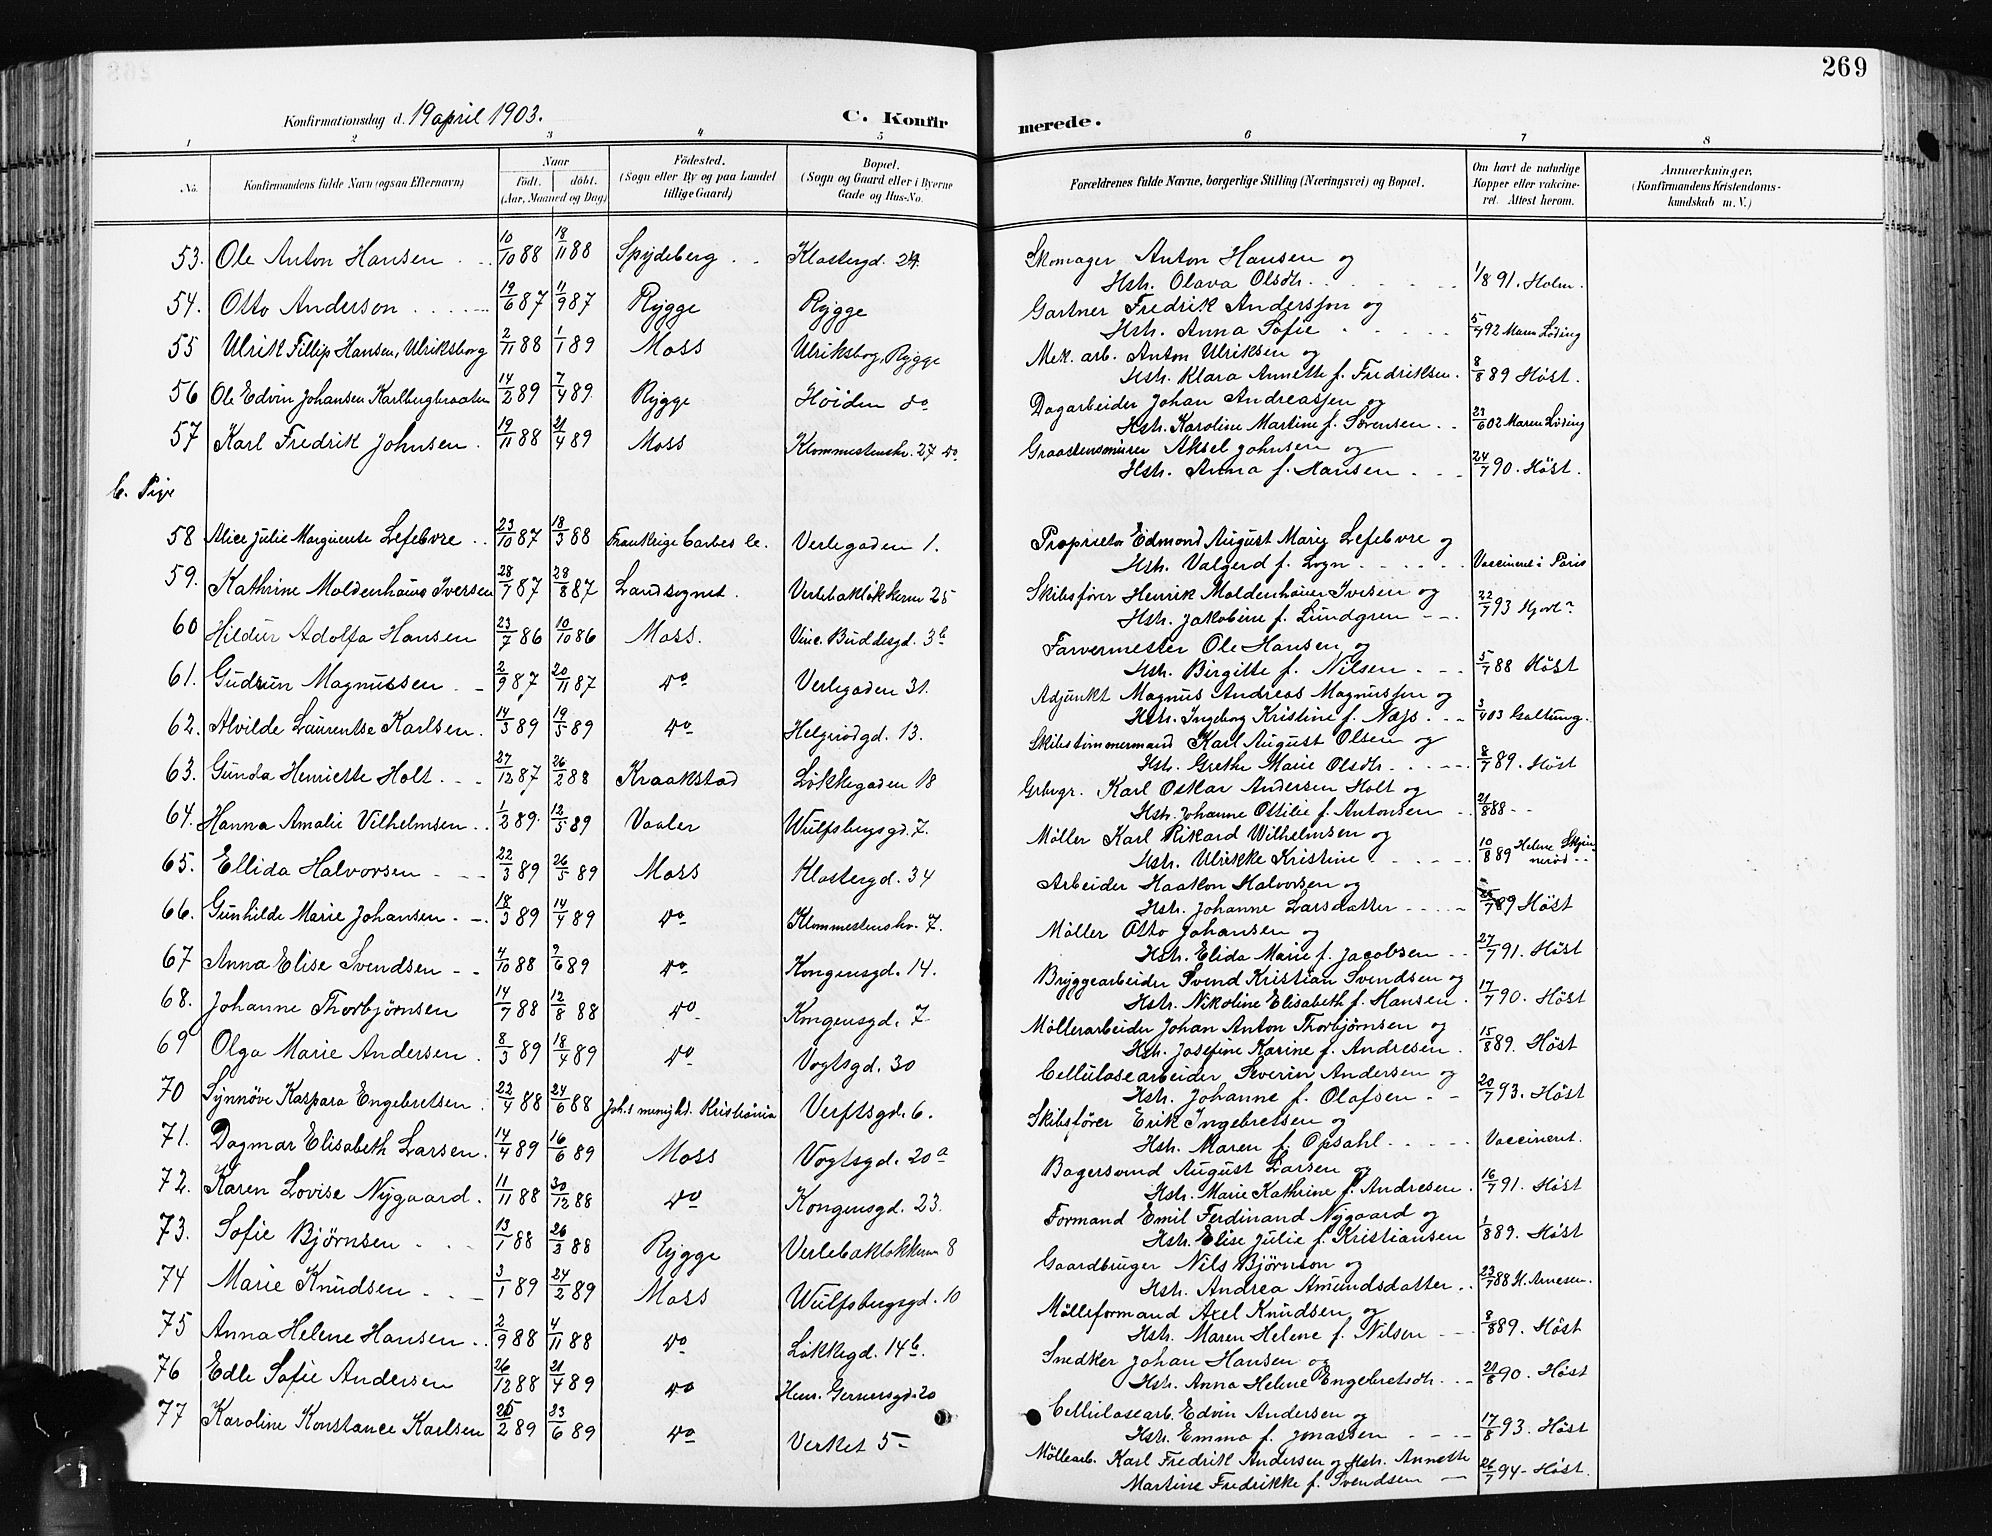 269
Konfirmationsdag d. 19 april 1903.
C. Konfirmerede.
1 2 3 4 5 6 7 8
No.
Konfirmandens fulde Navn (ogsaa Efternavn)
Naar
født. døbt.
(Aar, Maaned og Dag)
Födested.
(Sogn eller By og paa Landet
tillige Gaard)
Bopæl.
(Sogn og Gaard eller i Byerne
Gade og Hus-No.
Forældrenes fulde Navne, borgerlige Stilling (Næringsvei) og Bopæl.
Om havt de naturlige
Kopper eller vakcine-
ret. Attest herom.
Anmærkninger.
(Konfirmandens Kristendoms-
kundskab m. V.)
53. Ole Anton Hansen 10/10 88 18/11 88 Spydeberg Klostergd. 24. Skomager Anton Hansen og
Hstr. Olava Olsdtr. 1/8 91. Holm.
54. Otto Anderson 19/6 87 11/9 87 Rygge Rygge Gartner Fredrik Andersson og
Hstr. Anna Sofie 5/7 92 Maren Löding
55 Ulrik Fillip Hansen, Ulriksborg 2/11 88 1/1 89 Moss Ulriksbog, Rygge Mek. arb. Anton Ulriksen og
Hstr. Klara Annette f. Fredriksen. 8/8 89 Höst.
56 Ole Edvin Johansen Karlbergbraaten 14/2 89 7/4 89 Rygge Höiden do Dagarbeider Johan Andreassen og
Hstr. Karoline Martine f. Sørensen 23/6 02 Maren Löding
57 Karl Fredrik Johnsen 19/11 88 21/4 89 Moss Klommestenskr. 27 do Graastensmurer Aksel Johnsen og
Hstr. Anna f. Hansen 24/7 90. Höst.
b. Pige
58 Alice Julie Marguerite Lefebvre 23/10 87 18/3 88 Frankrige Carbes le. Verlegaden 1. Proprietær Edmond August Marie Lefebvre og
Hstr. Valgerd f. Logn Vaccineret i Paris
59. Kathrine Moldenhauer Iversen 28/7 87 28/8 87 Landsognet. Verlebakløkkerne 25 Skibsfører Henrik Moldenhauer Iversen og
Hstr. Jakobine f. Lundgren 22/7 93
60 Hildur Adolfa Hansen 23/7 86 10/10 86 Moss. Vinc. Buddesgd. 3b Farvermester Ole Hansen og
Hstr. Birgitte f. Nilsen 5/7 88 Höst
61. Gudrun Magnussen 2/9 87 20/11 87 do Verlegaden 31. Adjunkt Magnus Andreas Magnussen og
Hstr. Ingeborg Kristine f. Næss. 3/4 03 Galtung.
62. Alvilde Laurentse Karlsen. 14/3 89 19/5 89 do Helgerødgd. 13. Skibstømmermand Karl August Olsen og
Hstr. Grethe Marie Olsdtr. 8/7 89. Höst
63. Gunda Henriette Holt. 27/12 87 26/2 88 Kraakstad Løkkegaden 18 Grbrgr. Karl Oskar Andersen Holt og
Hstr. Johanne Ottilie f. Antonsen 21/8 88 --
64. Hanna Amalie Vilhelmsen 1/2 89. 12/5 89 Vaaler Wulfsbergsgd. 7. Møller Karl Rikard Wilhelmsen og
Hstr. Ulrikke Kristine 10/8 89 Helene Skjin-
nerød --
65. Ellida Halvorsen 22/3 89 26/5 89 Moss Klostergd. 34 Arbeider Haakon Halvorsen og
Hstr. Johanne Larsdatter /7 89 Höst
66. Gunhilde Marie Johansen 18/3 89 14/4 89 do Klommestenskr. 7. Møller Otto Johansen og
Hstr. Elida Marie f. Jacobsen 27/7 91. Höst
67 Anna Elise Svendsen 4/10 88 2/6 89 do Kongensgd. 14. Bryggearbeider Svend Kristian Svendsen og
Hstr. Nikoline Elisabeth f. Hansen 17/7 90. Höst
68. Johanne Thorbjørnsen 14/7 88 12/8 88 do Kongensgd. 7. Møllerarbeider Johan Anton Thorbjørnsen og
Hstr. Josefine Karine f. Andresen 15/8 89. Höst
69 Olga Marie Andersen 8/3 89 18/4 89 do Vogtsgd. 30 Cellulosearbeider Severin Andersen og
Hstr. Johanne f. Olafsen 20/7 93. Höst
70 Synnöve Kaspara Engebretsen. 22/4 88 24/6 88 Joh.s menighd. Kristiania Verftsgd. 6. Skibsfører Erik Ingebretsen og
Hstr. Maren f. Opsahl Vaccineret.
71. Dagmar Elisabeth Larsen. 14/4 89 16/6 89 Moss Vogtsgd. 20a Bagersvend August Larsen og
Hstr. Marie Kathrine f. Andresen 16/7 91. Höst
72. Karen Lovise Nygaard. 11/11 88 30/12 88 do Kongensgd. 23. Formand Emil Ferdinand Nygaard og
Hstr. Elise Julie f. Kristiansen 1/8 89. Höst
73. Sofie Bjørnsen 13/1 88 26/3 88 Rygge Verlebakløkkerne 8 Gaardbruger Nils Bjørnson og
Hstr. Andrea Amundsdatter 23/7 88 H. Arnesen.
74 Marie Knudsen 3/1 89 24/2 89 Moss Wulfsbergsgd. 10 Mølleformand Axel Knudsen og
Hstr. Maren Helene f. Nilsen 8/8 89. Höst
75 Anna Helene Hansen 2/9 88 4/11 88 do Løkkegd. 14b. Snedker Johan Hansen og
Hstr. Anna Helene Engebretsdtr. 20/8 90. Höst
76 Edle Sofie Andersen 26/12 88 21/4 89 do Henr. Gernersgd. 20 Cellulosearb. Edvin Andersen og
Hstr. Emma f. Jonassen 17/8 93. Höst
77 Karoline Konstance Karlsen 25/2 89 23/6 89 do Verket 5- Møllearb. Karl Fredrik Andersen og Hstr. Annette
Martine Fredrikke f. Svendsen 26/7 94- Höst.